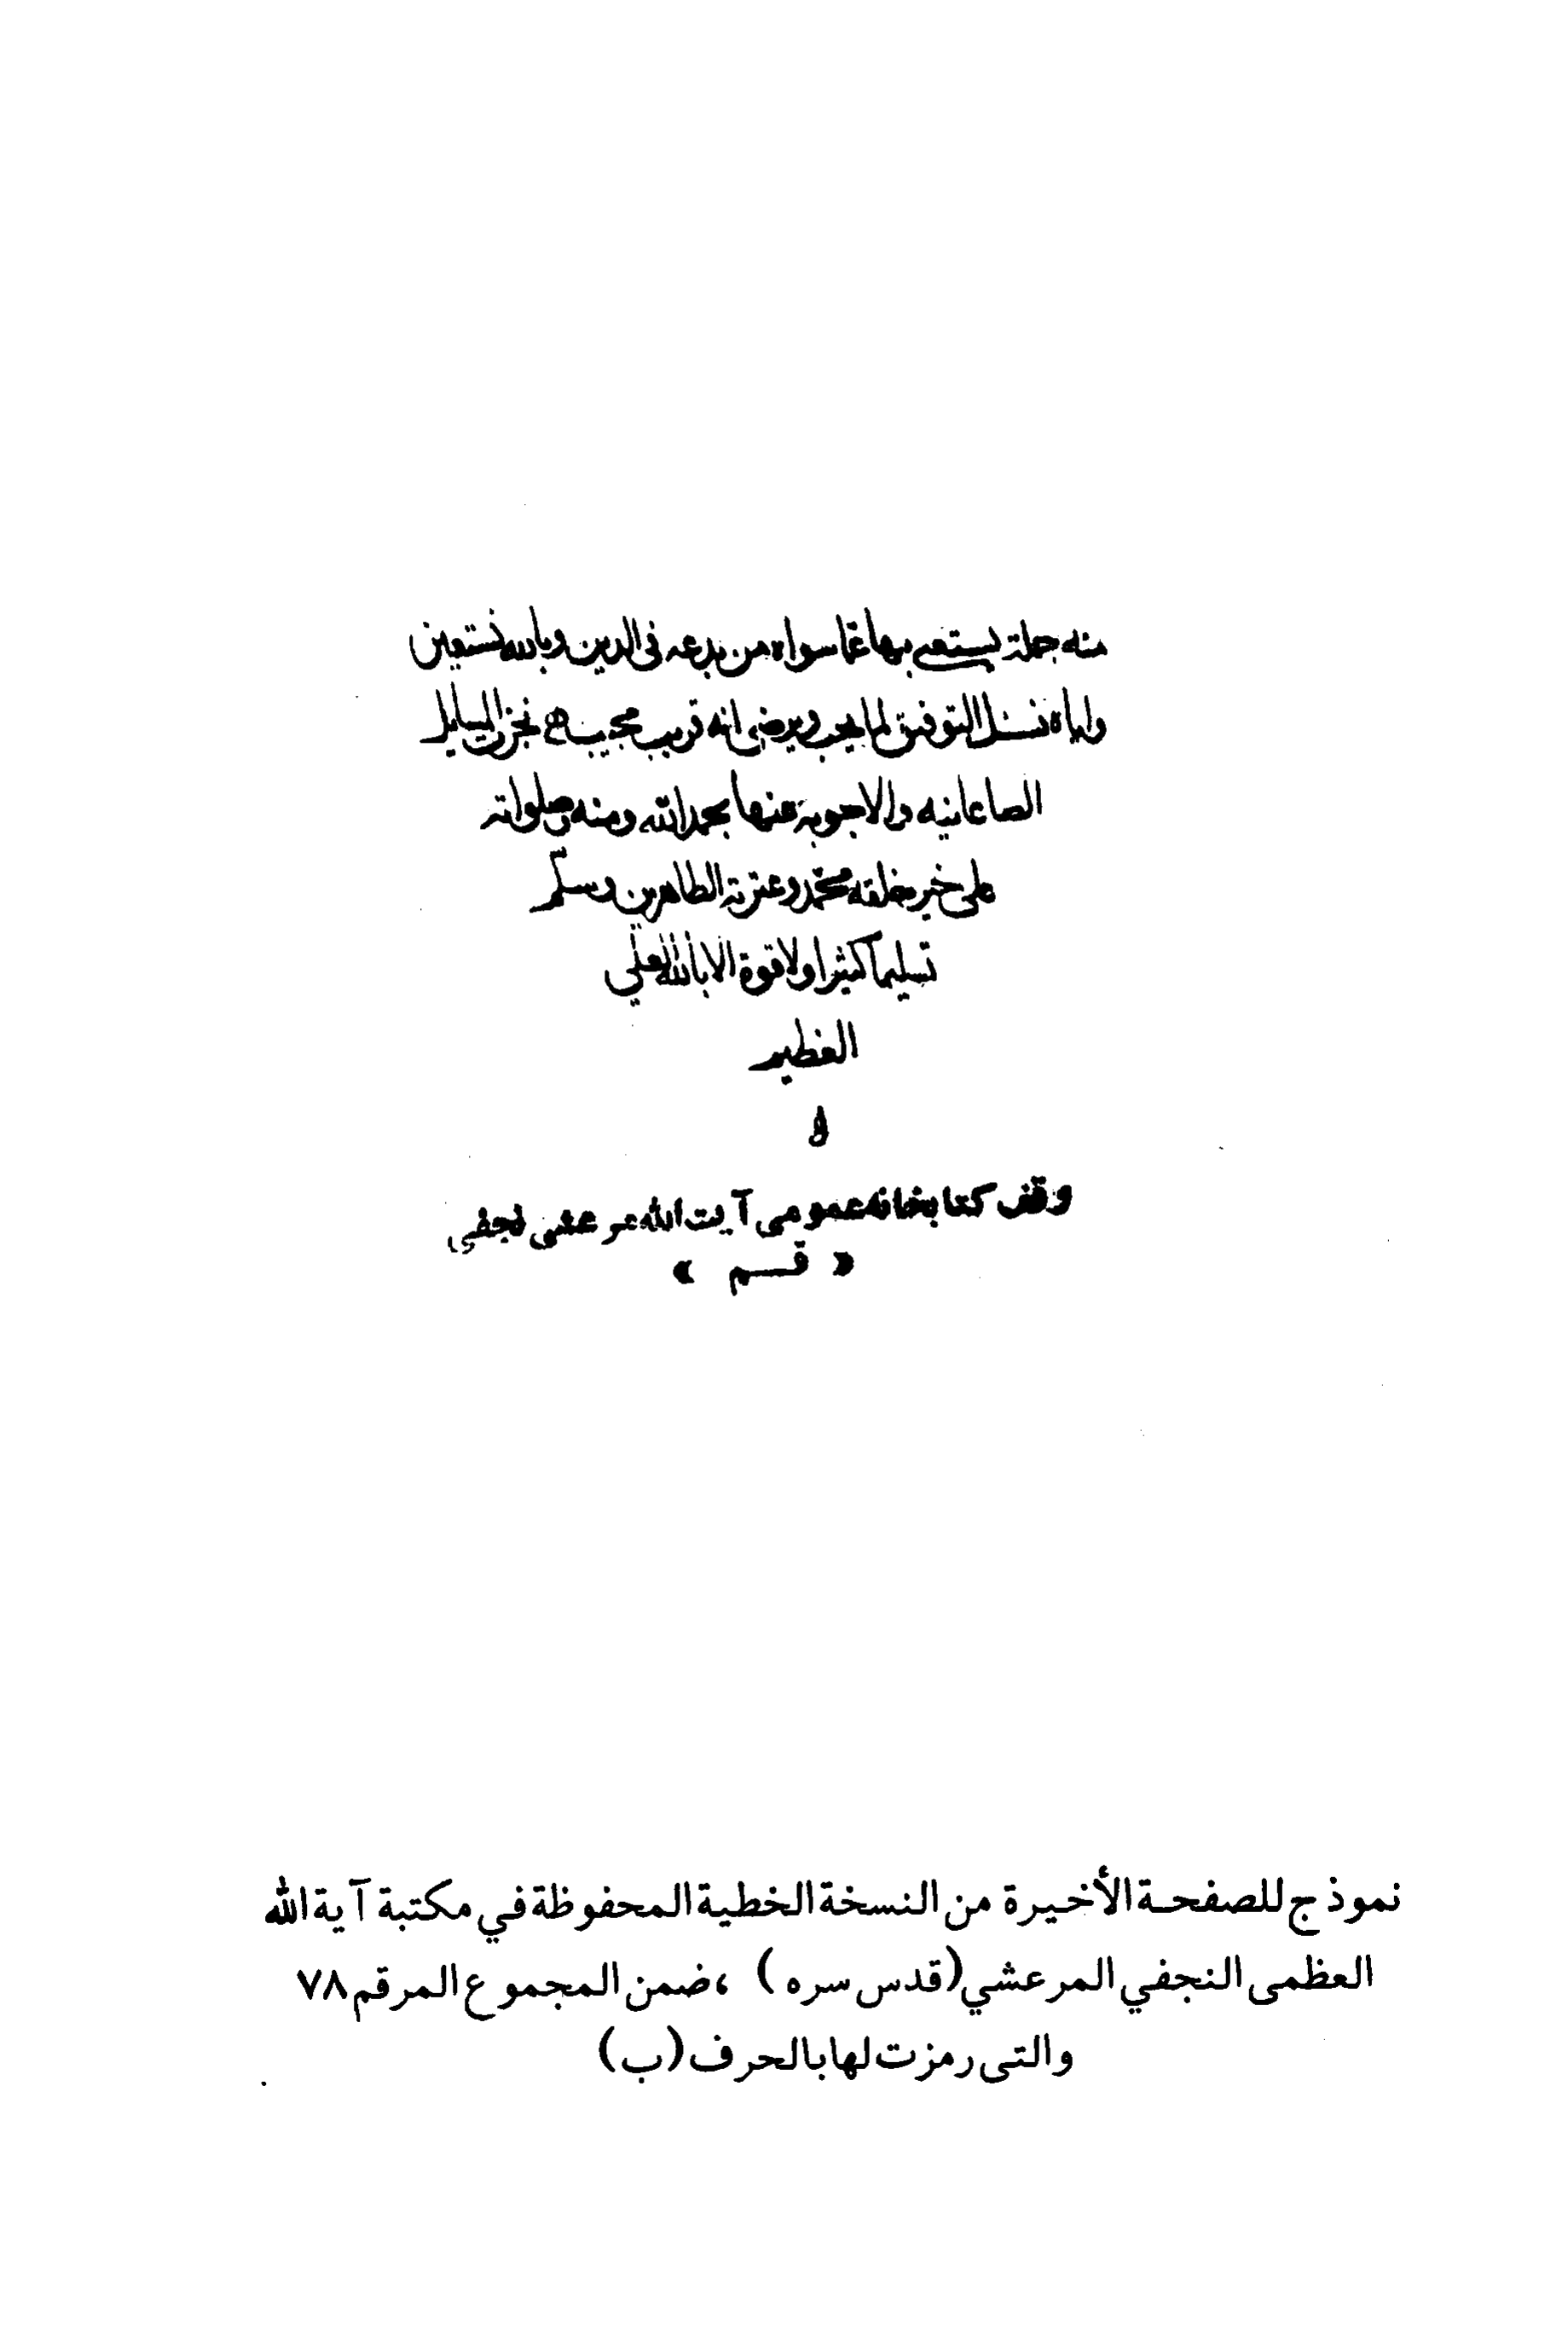 منه جملة يستغنى بها عما سواه من بدعه فى الدين وبالله نستعين
واياه نسئل التوفيق لما يحب ويرضى انه قريب مجيب نجزت المسايل
الصاغانيه والاجوبة عنها بحمد الله ومنه وصلواته
على خير خلقه محمد وعترته الطاهرين وسلم
تسليما كثيرا ولا قوة الا بالله العلي
العظيم
وقف كتابخانه عمومى آيت الله مرعشى نجفى
« قـــم »
نموذج للصفحة الأخيرة من النسخة الخطية المحفوظة في مكتبة آية الله
العظمى النجفي المرعشي (قدس سره) ، ضمن المجموع المرقم ٧٨
والتى رمزت لها بالحرف (ب)